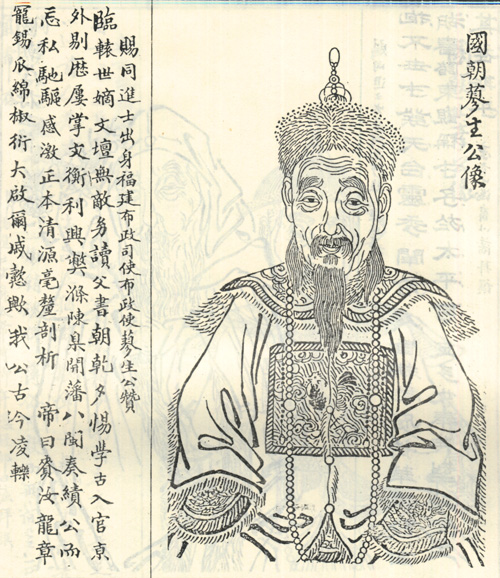 國朝蓼生公像
賜同進士出身福建布政司使布政使蓼生公贊
臨轅世嫡文壇無敵務讀父書朝乾夕惕學古入官京
外剔歷屢掌文衡利興弊滌陳臬開藩八閩奏績公而
忘私馳驅感激正本清源毫釐剖析 帝曰賚汝龍章
錫瓜綿椒衍大啟爾懿歟我公古今凌轢